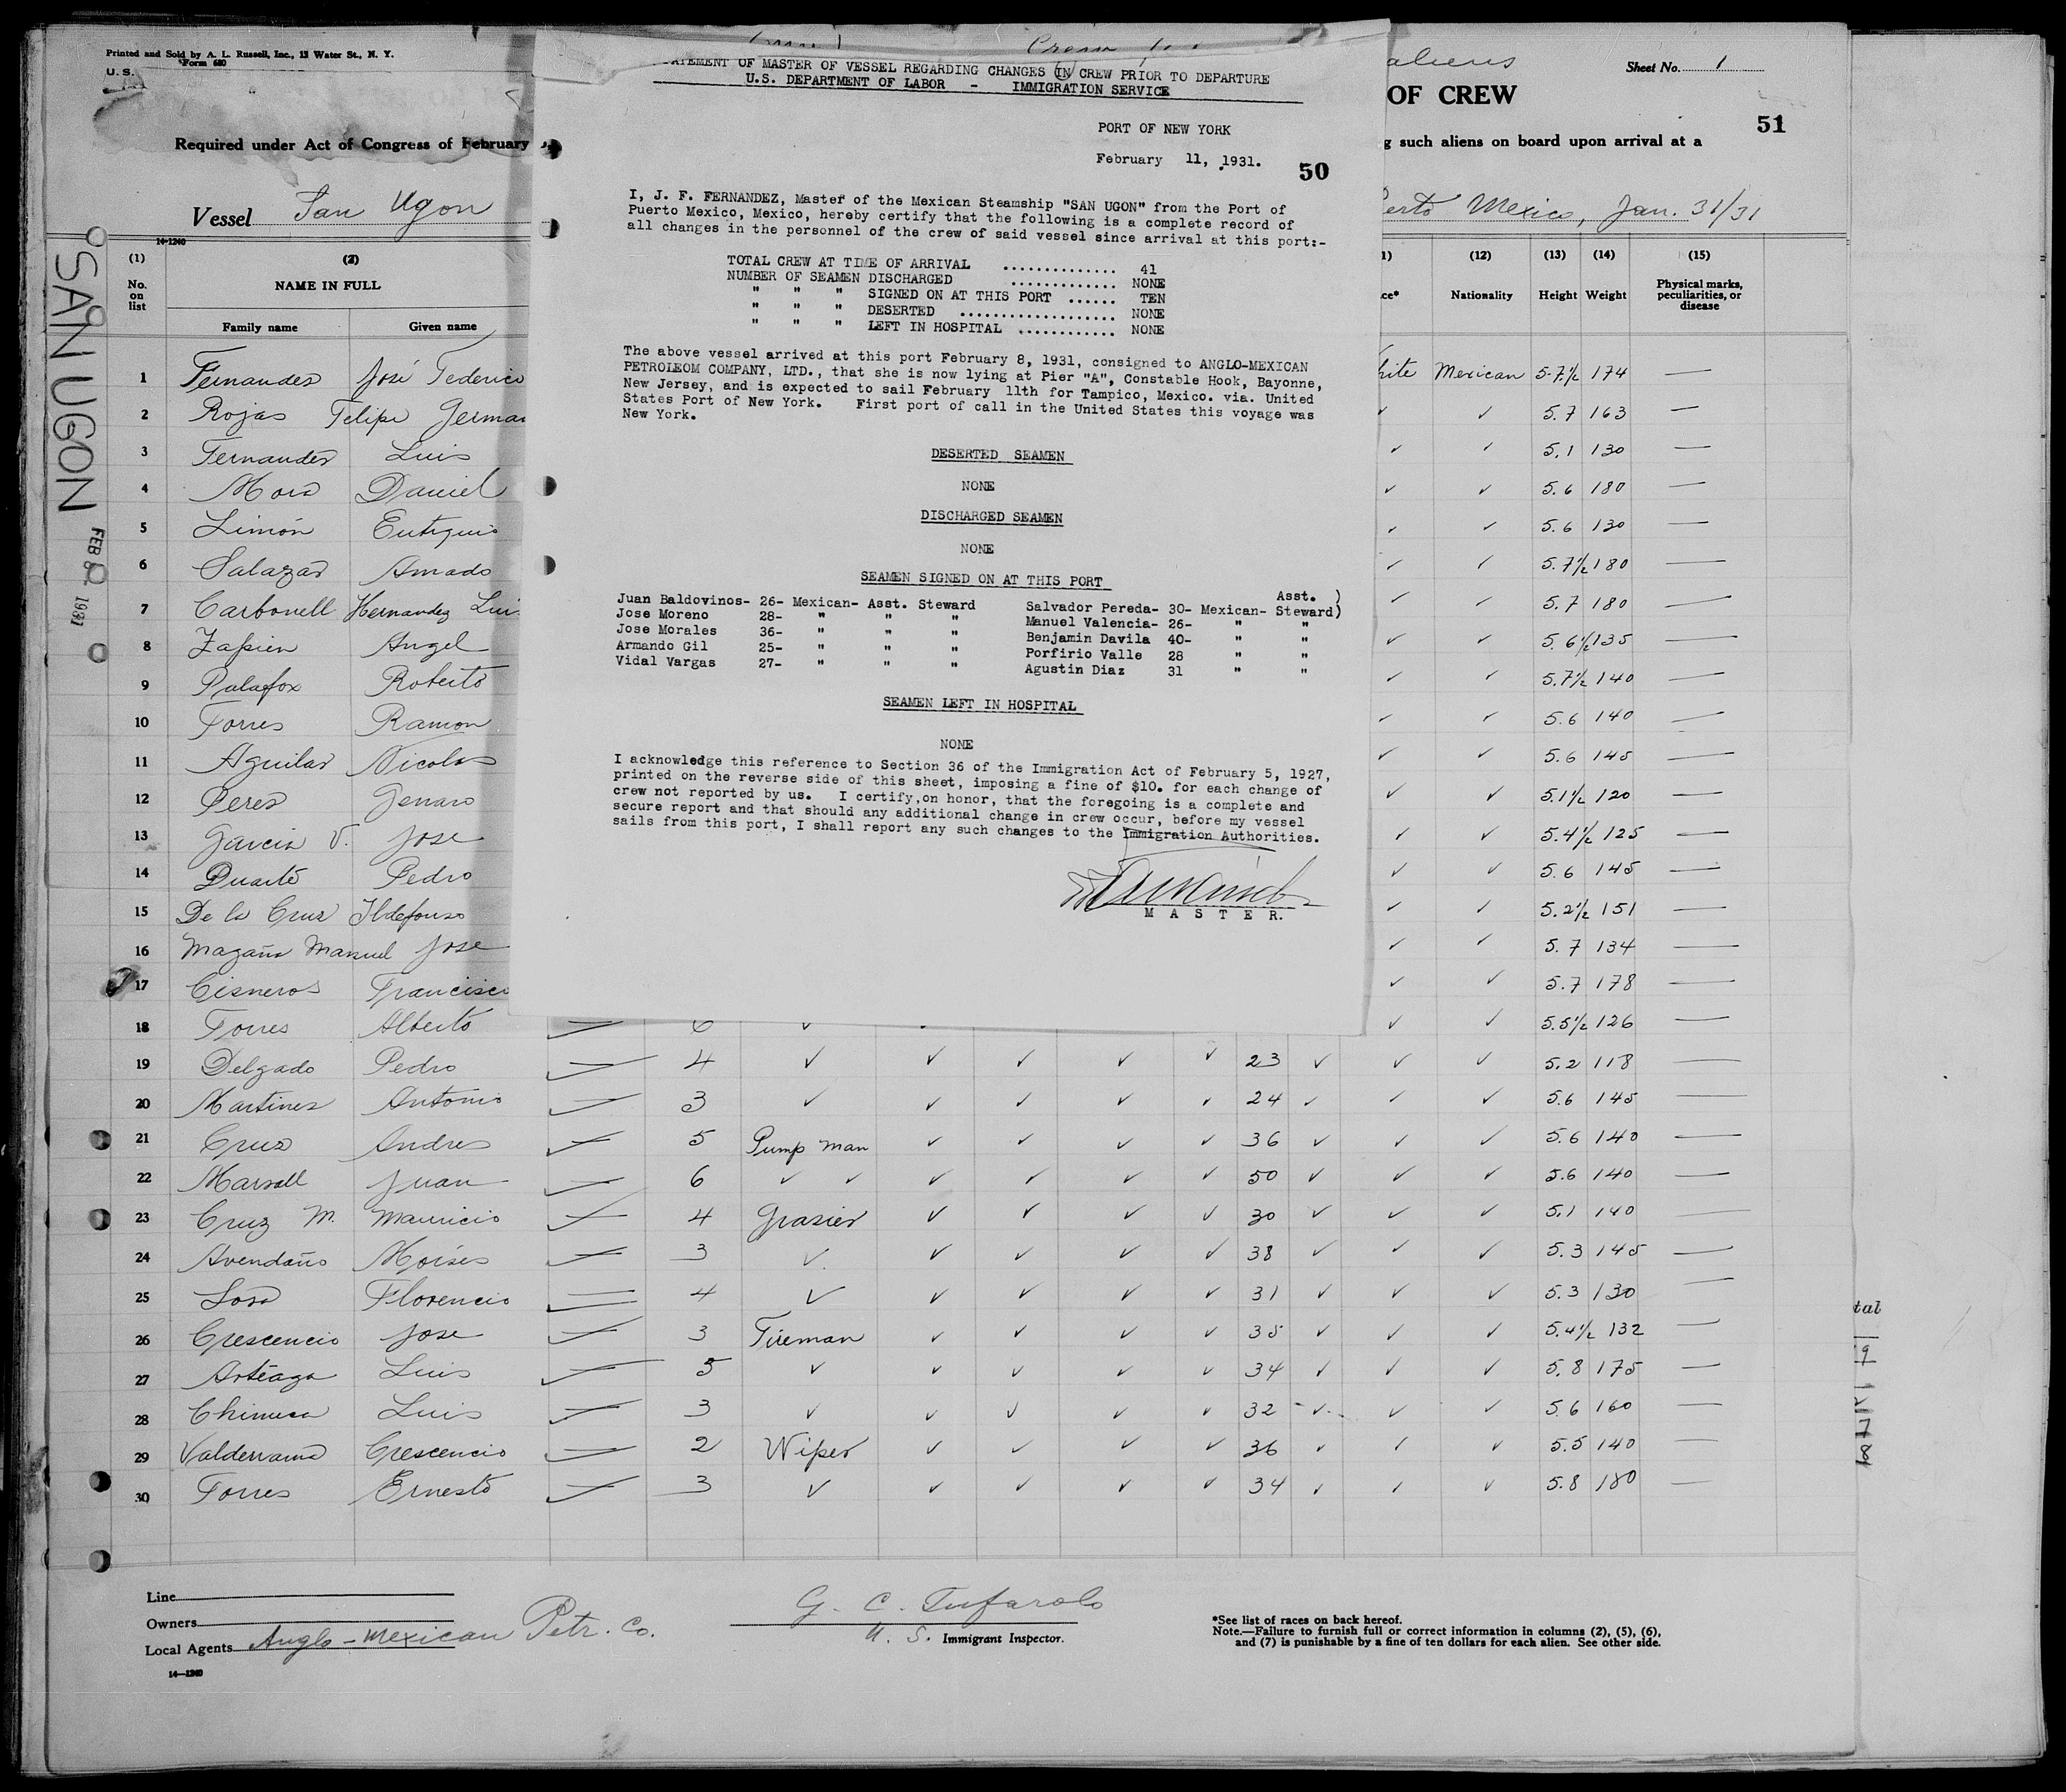 Printed and Sold by A. L. Russell, Inc., 13 Water St., N. Y.
Form 680
U. S.
aliens
Sheet No. 1
OF CREW
51
Required under Act of Congress of February
g such aliens on board upon arrival at a
Vessel San Ugon
erto Mexico, Jan. 31/31
14-1240
SAN UGON
FEB 8 1931
STATEMENT OF MASTER OF VESSEL REGARDING CHANGES IN CREW PRIOR TO DEPARTURE
U.S. DEPARTMENT OF LABOR - IMMIGRATION SERVICE
PORT OF NEW YORK
February 11, 1931.
50
I, J. F. FERNANDEZ, Master of the Mexican Steamship "SAN UGON" from the Port of
Puerto Mexico, Mexico, hereby certify that the following is a complete record of
all changes in the personnel of the crew of said vessel since arrival at this port:-
TOTAL CREW AT TIME OF ARRIVAL .............. 41
NUMBER OF SEAMEN DISCHARGED ............. NONE
" " " SIGNED ON AT THIS PORT ...... TEN
" " " DESERTED .................... NONE
" " " LEFT IN HOSPITAL ............ NONE
The above vessel arrived at this port February 8, 1931, consigned to ANGLO-MEXICAN
PETROLEOM COMPANY, LTD., that she is now lying at Pier "A", Constable Hook, Bayonne,
New Jersey, and is expected to sail February 11th for Tampico, Mexico. via. United
States Port of New York. First port of call in the United States this voyage was
New York.
DESERTED SEAMEN
NONE
DISCHARGED SEAMEN
NONE
SEAMEN SIGNED ON AT THIS PORT
Juan Baldovinos- 26- Mexican- Asst. Steward
Jose Moreno 28- " " "
Jose Morales 36- " " "
Armando Gil 25- " " "
Vidal Vargas 27- " " "
Asst. )
Salvador Pereda- 30- Mexican- Steward)
Manuel Valencia- 26- " "
Benjamin Davila 40- " "
Porfirio Valle 28 " "
Agustin Diaz 31 " "
SEAMEN LEFT IN HOSPITAL
NONE
I acknowledge this reference to Section 36 of the Immigration Act of February 5, 1927,
printed on the reverse side of this sheet, imposing a fine of $10. for each change of
crew not reported by us. I certify,on honor, that the foregoing is a complete and
secure report and that should any additional change in crew occur, before my vessel
sails from this port, I shall report any such changes to the Immigration Authorities.
M A S T E R.
(1) (2) (12) (13) (14) (15)
No. on list NAME IN FULL Nationality Height Weight Physical marks, peculiarities, or disease
Family name Given name
1 Fernandez José Federico hite Mexican 5-7½ 174 —
2 Rojas Felipe German ✓ ✓ 5.7 163 —
3 Fernandez Luis ✓ ✓ 5.1 130 —
4 Mora Daniel ✓ ✓ 5.6 180 —
5 Limón Eutiquio ✓ ✓ 5.6 130 —
6 Salazar Amado ✓ ✓ 5.7½ 180 —
7 Carbonell Hernandez Lui ✓ ✓ 5.7 180 —
8 Zapien Angel ✓ ✓ 5.6½ 135 —
9 Palafox Roberto ✓ ✓ 5.7½ 140 —
10 Torres Ramon ✓ ✓ 5.6 140 —
11 Aguilar Nicolas ✓ ✓ 5.6 145 —
12 Perez Genaro ✓ ✓ 5.1½ 120 —
13 Garcia V. Jose ✓ ✓ 5.4½ 125 —
14 Duarte Pedro ✓ ✓ 5.6 145 —
15 De la Cruz Ildefonso ✓ ✓ 5.2½ 151 —
16 Magaña Manuel Jose ✓ ✓ 5.7 134 —
17 Cisneros Francisco ✓ ✓ 5.7 178 —
18 Torres Alberto — 6 ✓ ✓ ✓ 5.5½ 126 —
19 Delgado Pedro — 4 ✓ ✓ ✓ ✓ ✓ 23 ✓ ✓ ✓ 5.2 118 —
20 Martinez Antonio — 3 ✓ ✓ ✓ ✓ ✓ 24 ✓ ✓ ✓ 5.6 145 —
21 Cruz Andres — 5 Pump man ✓ ✓ ✓ ✓ 36 ✓ ✓ ✓ 5.6 140 —
22 Marsall Juan — 6 ✓ ✓ ✓ ✓ ✓ ✓ 50 ✓ ✓ ✓ 5.6 140 —
23 Cruz M. Mauricio — 4 Grasier ✓ ✓ ✓ ✓ 30 ✓ ✓ ✓ 5.1 140 —
24 Avendaño Moises — 3 ✓ ✓ ✓ ✓ ✓ 38 ✓ ✓ ✓ 5.3 145 —
25 Sosa Florencio — 4 ✓ ✓ ✓ ✓ ✓ 31 ✓ ✓ ✓ 5.3 130 —
26 Crescencio Jose — 3 Fireman ✓ ✓ ✓ ✓ 35 ✓ ✓ ✓ 5.4½ 132 —
27 Arteaga Luis — 5 ✓ ✓ ✓ ✓ ✓ 34 ✓ ✓ ✓ 5.8 175 —
28 Chimeca Luis — 3 ✓ ✓ ✓ ✓ ✓ 32 ✓ ✓ ✓ 5.6 160 —
29 Valderrama Crescencio — 2 Wiper ✓ ✓ ✓ ✓ 36 ✓ ✓ ✓ 5.5 140 —
30 Torres Ernesto — 3 ✓ ✓ ✓ ✓ ✓ 34 ✓ ✓ ✓ 5.8 180 —
tal
Line
Owners
Local Agents Anglo-Mexican Petr. Co.
14—1240
G. C. Tufarolo
U. S. Immigrant Inspector.
*See list of races on back hereof.
Note.—Failure to furnish full or correct information in columns (2), (5), (6),
and (7) is punishable by a fine of ten dollars for each alien. See other side.